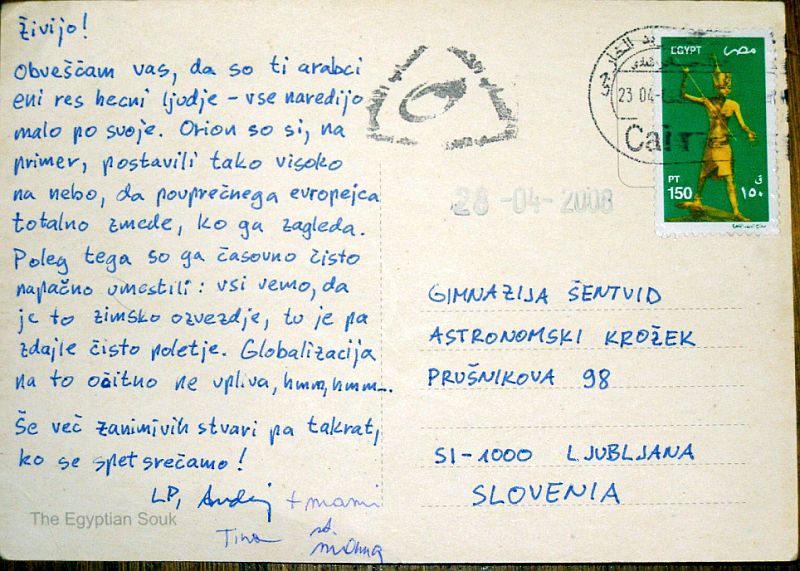 Živijo!
Obveščam vas, da so ti arabci
eni res hecni ljudje – vse naredijo
malo po svoje. Orion so si, na
primer, postavili tako visoko
na nebo, da povprečnega evropejca
totalno zmede, ko ga zagleda.
Poleg tega so ga časovno čisto
napačno umestili: vsi vemo, da
je to zimsko ozvezdje, tu je pa
zdajle čisto poletje. Globalizacija
na to očitno ne vpliva, hmm, hmm...
Še več zanimivih stvari pa takrat,
ko se spet srečamo!
LP, Andrej + mami
Tina
The Egyptian Souk
EGYPT مصر
PT 150 ١٥٠ ق
23 04
Cair
28-04-2008
GIMNAZIJA ŠENTVID
ASTRONOMSKI KROŽEK
PRUŠNIKOVA 98
SI-1000 LJUBLJANA
SLOVENIA